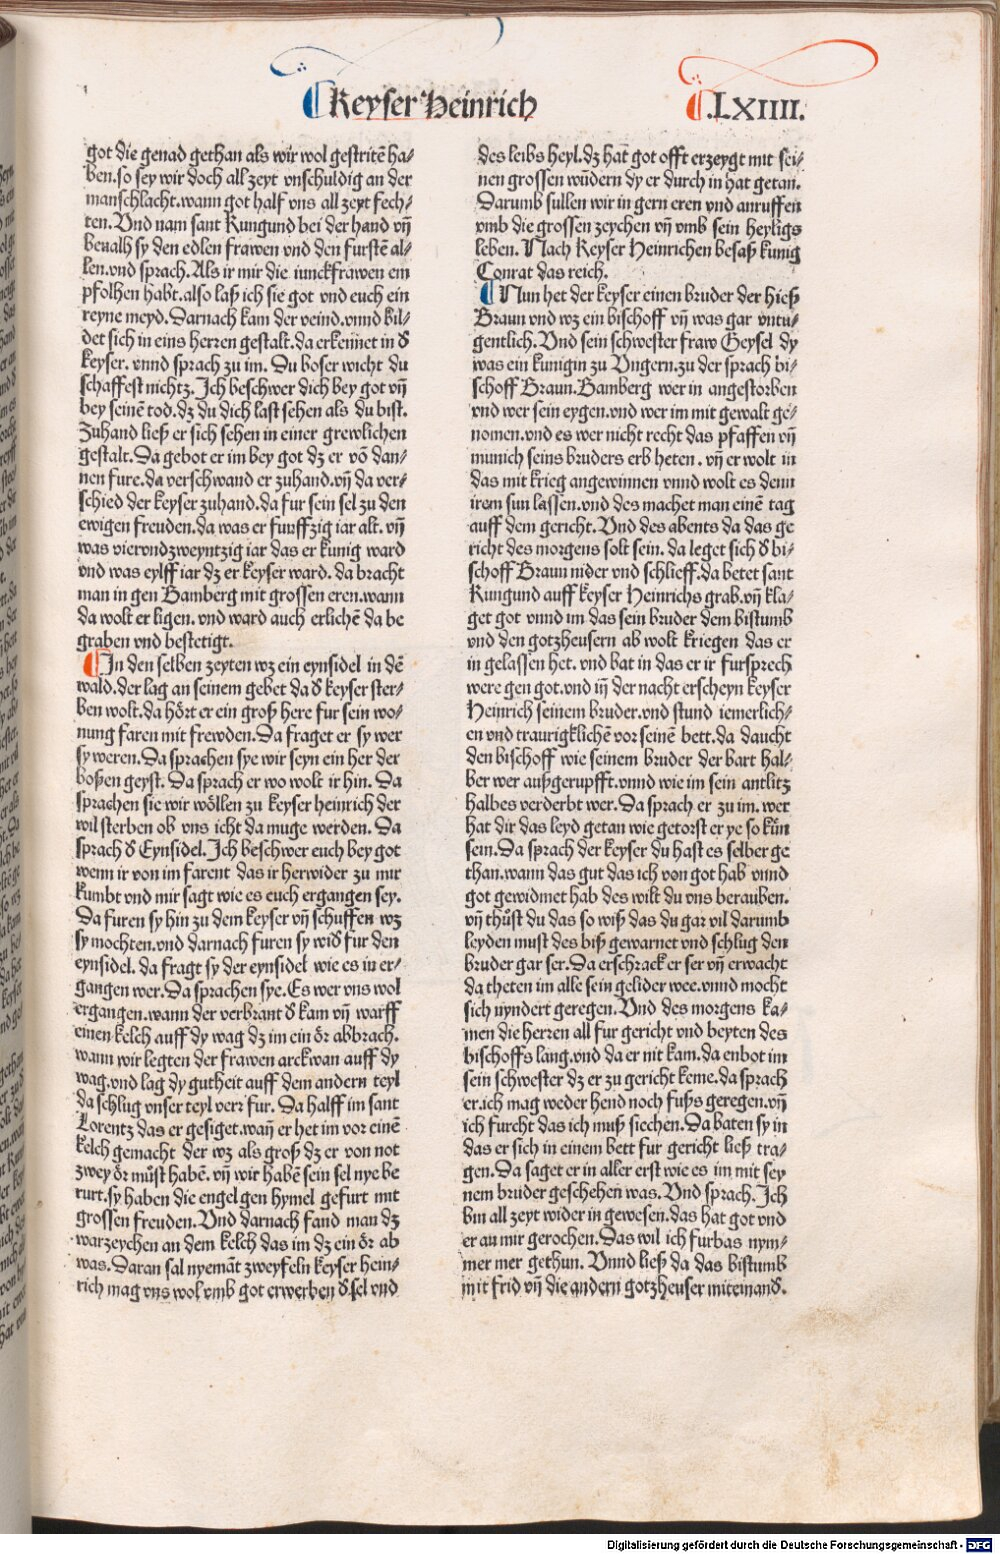 Keyser Heinrich
.LXIIII.
got die genad gethan als wir wol gestritē ha⸗
ben. so sey wir doch all zeyt vnschuldig an der
manschlacht. wann got half vns all zeyt fech⸗
ten. Vnd nam sant Kungund bei der hand vñ
beualh sy den edlen frawen vnd den furstē al⸗
len. vnd sprach. Als ir mir die iunckfrawen em
pfolhen habt. also laß ich sie got vnd euch ein
reyne meyd. Darnach kam der veind. vnnd bil⸗
det sich in eins herren gestalt. da erkennet in ď
keyser. vnnd sprach zu im. Du boser wicht du
schaffest nichtz. Ich beschwer dich bey got vñ
bey seinē tod. dz du dich last sehen als du bist.
Zuhand ließ er sich sehen in einer grewlichen
gestalt. Da gebot er im bey got dz er vō dan⸗
nen fure. da verschwand er zuhand. vñ da ver⸗
schied der keyser zuhand. da fur sein sel zu den
ewigen freuden. da was er funffzig iar alt. vñ
was viervndzweyntzig iar das er kunig ward
vnd was eylff iar dz er keyser ward. da bracht
man in gen Bamberg mit grossen eren. wann
da wolt er ligen. vnd ward auch erlichē da be
graben vnd bestetigt.
In den selben zeyten wz ein eynsidel in dē
wald. der lag an seinem gebet da ď keyser ster⸗
ben wolt. da hört er ein groß here fur sein wo⸗
nung faren mit frewden. Da fraget er sy wer
sy weren. Da sprachen sye wir seyn ein her der
boßen geyst. Da sprach er wo wolt ir hin. Da
sprachen sie wir wöllen zu keyser heinrich der
wil sterben ob vns icht da muge werden. Da
sprach ď Eynsidel. Ich beschwer euch bey got
wenn ir von im farent das ir herwider zu mir
kumbt vnd mir sagt wie es euch ergangen sey.
Da furen sy hin zu dem keyser vñ schuffen wz
sy mochten. vnd darnach furen sy wiď fur den
eynsidel. da fragt sy der eynsidel wie es in er⸗
gangen wer. Da sprachen sye. Es wer vns wol
ergangen. wann der verbrant ď kam vñ warff
einen kelch auff dy wag dz im ein ör abbrach.
wann wir legten der frawen arckwan auff dy
wag. vnd lag dy gutheit auff dem andern teyl
da schlug vnser teyl verr fur. Da halff im sant
Lorentz das er gesiget. wañ er het im vor einē
kelch gemacht der wz als groß dz er von not
zwey ör mu̇st habē. vñ wir habē sein sel nye be
rurt. sy haben die engel gen hymel gefurt mit
grossen freuden. Vnd darnach fand man dz
warzeychen an dem kelch das im dz ein ör ab
was. Daran sal nyemāt zweyfeln keyser hein⸗
rich mag vns wol vmb got erwerben ď sel vnd
des leibs heyl. dz hat got offt erzeygt mit sei⸗
nen grossen wu̇ndern dy er durch in hat getan.
Darumb sullen wir in gern eren vnd anruffen
vmb die grossen zeychen vñ vmb sein heyligs
leben. Nach Keyser Heinrichen besaß kunig
Conrat das reich.
Nun het der keyser einen bruder der hieß
Braun vnd wz ein bischoff vñ was gar vntu⸗
gentlich. Vnd sein schwester fraw Geysel dy
was ein kunigin zu Vngern. zu der sprach bi⸗
schoff Braun. Bamberg wer in angestorben
vnd wer sein eygen. vnd wer im mit gewalt ge⸗
nomen. vnd es wer nicht recht das pfaffen vñ
munich seins bruders erb heten. vñ er wolt in
das mit krieg angewinnen vnnd wolt es denn
irem sun lassen. vnd des machet man einē tag
auff dem gericht. Vnd des abents da das ge
richt des morgens solt sein. da leget sich ď bi⸗
schoff Braun nider vnd schlieff. da betet sant
Kungund auff keyser Heinrichs grab. vñ kla⸗
get got vnnd im das sein bruder dem bistumb
vnd den gotzheusern ab wolt kriegen das er
in gelassen het. vnd bat in das er ir fursprech
were gen got. vnd iñ der nacht erscheyn keyser
Heinrich seinem bruder. vnd stund iemerlich⸗
en vnd traurigklichē vor seinē bett. da daucht
den bischoff wie seinem bruder der bart hal⸗
ber wer außgerupfft. vnnd wie im sein antlitz
halbes verderbt wer. Da sprach er zu im. wer
hat dir das leyd getan wie getorst er ye so ku̇n
sein. Da sprach der keyser du hast es selber ge
than. wann das gut das ich von got hab vnnd
got gewidmet hab des wilt du vns berauben.
vñ thu̇st du das so wiß das du gar vil darumb
leyden must des biß gewarnet vnd schlug den
bruder gar ser. Da erschrack er ser vñ erwacht
da theten im alle sein gelider wee. vnnd mocht
sich nyndert geregen. Vnd des morgens ka⸗
men die herren all fur gericht vnd beyten des
bischoffs lang. vnd da er nit kam. da enbot im
sein schwester dz er zu gericht keme. da sprach
er. ich mag weder hend noch fuß geregen. vñ
ich furcht das ich muß siechen. Da baten sy in
das er sich in einem bett fur gericht ließ tra⸗
gen. Da saget er in aller erst wie es im mit sey
nem bruder geschehen was. Vnd sprach. Ich
bin all zeyt wider in gewesen. das hat got vnd
er an mir gerochen. Das wil ich furbas nym⸗
mer mer gethun. Vnnd ließ da das bistumb
mit frid vñ die andern gotzheuser miteinand̓.
Digitalisierung gefördert durch die Deutsche Forschungsgemeinschaft - DFG